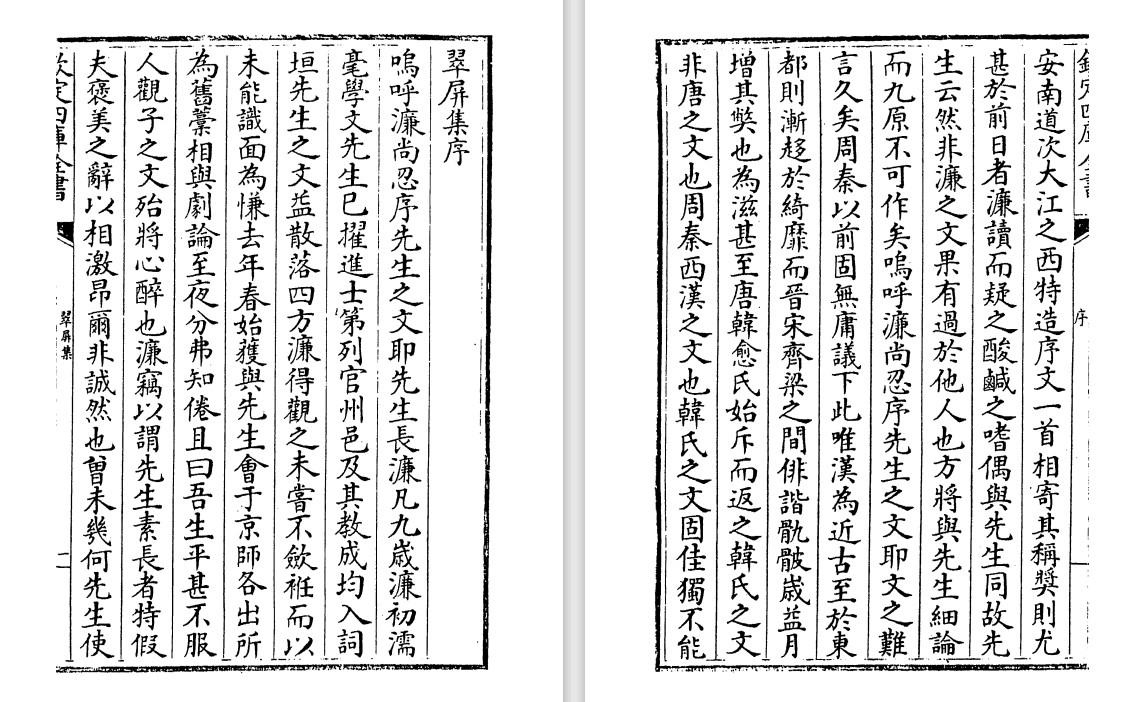 翠屏集序
嗚呼濂尚忍序先生之文耶先生長濂凡九歲濂初濡
毫學文先生已擢進士第列官州邑及其教成均入詞
垣先生之文益散落四方濂得觀之未嘗不歛袵而以
未能識面為慊去年春始獲與先生會于京師各出所
為舊藁相與劇論至夜分弗知倦且曰吾生平甚不服
人觀子之文殆將心醉也濂竊以謂先生素長者特假
夫褒美之辭以相激昂爾非誠然也曾未幾何先生使
欽定四庫全書
翠屏集
二
欽定四庫全書
序
安南道次大江之西特造序文一首相寄其稱獎則尤
甚於前日者濂讀而疑之酸鹹之嗜偶與先生同故先
生云然非濂之文果有過於他人也方將與先生細論
而九原不可作矣嗚呼濂尚忍序先生之文耶文之難
言久矣周秦以前固無庸議下此唯漢為近古至於東
都則漸趍於綺靡而晉宋齊梁之間俳諧骫骳歲益月
增其獘也為滋甚至唐韓愈氏始斥而返之韓氏之文
非唐之文也周秦西漢之文也韓氏之文固佳獨不能